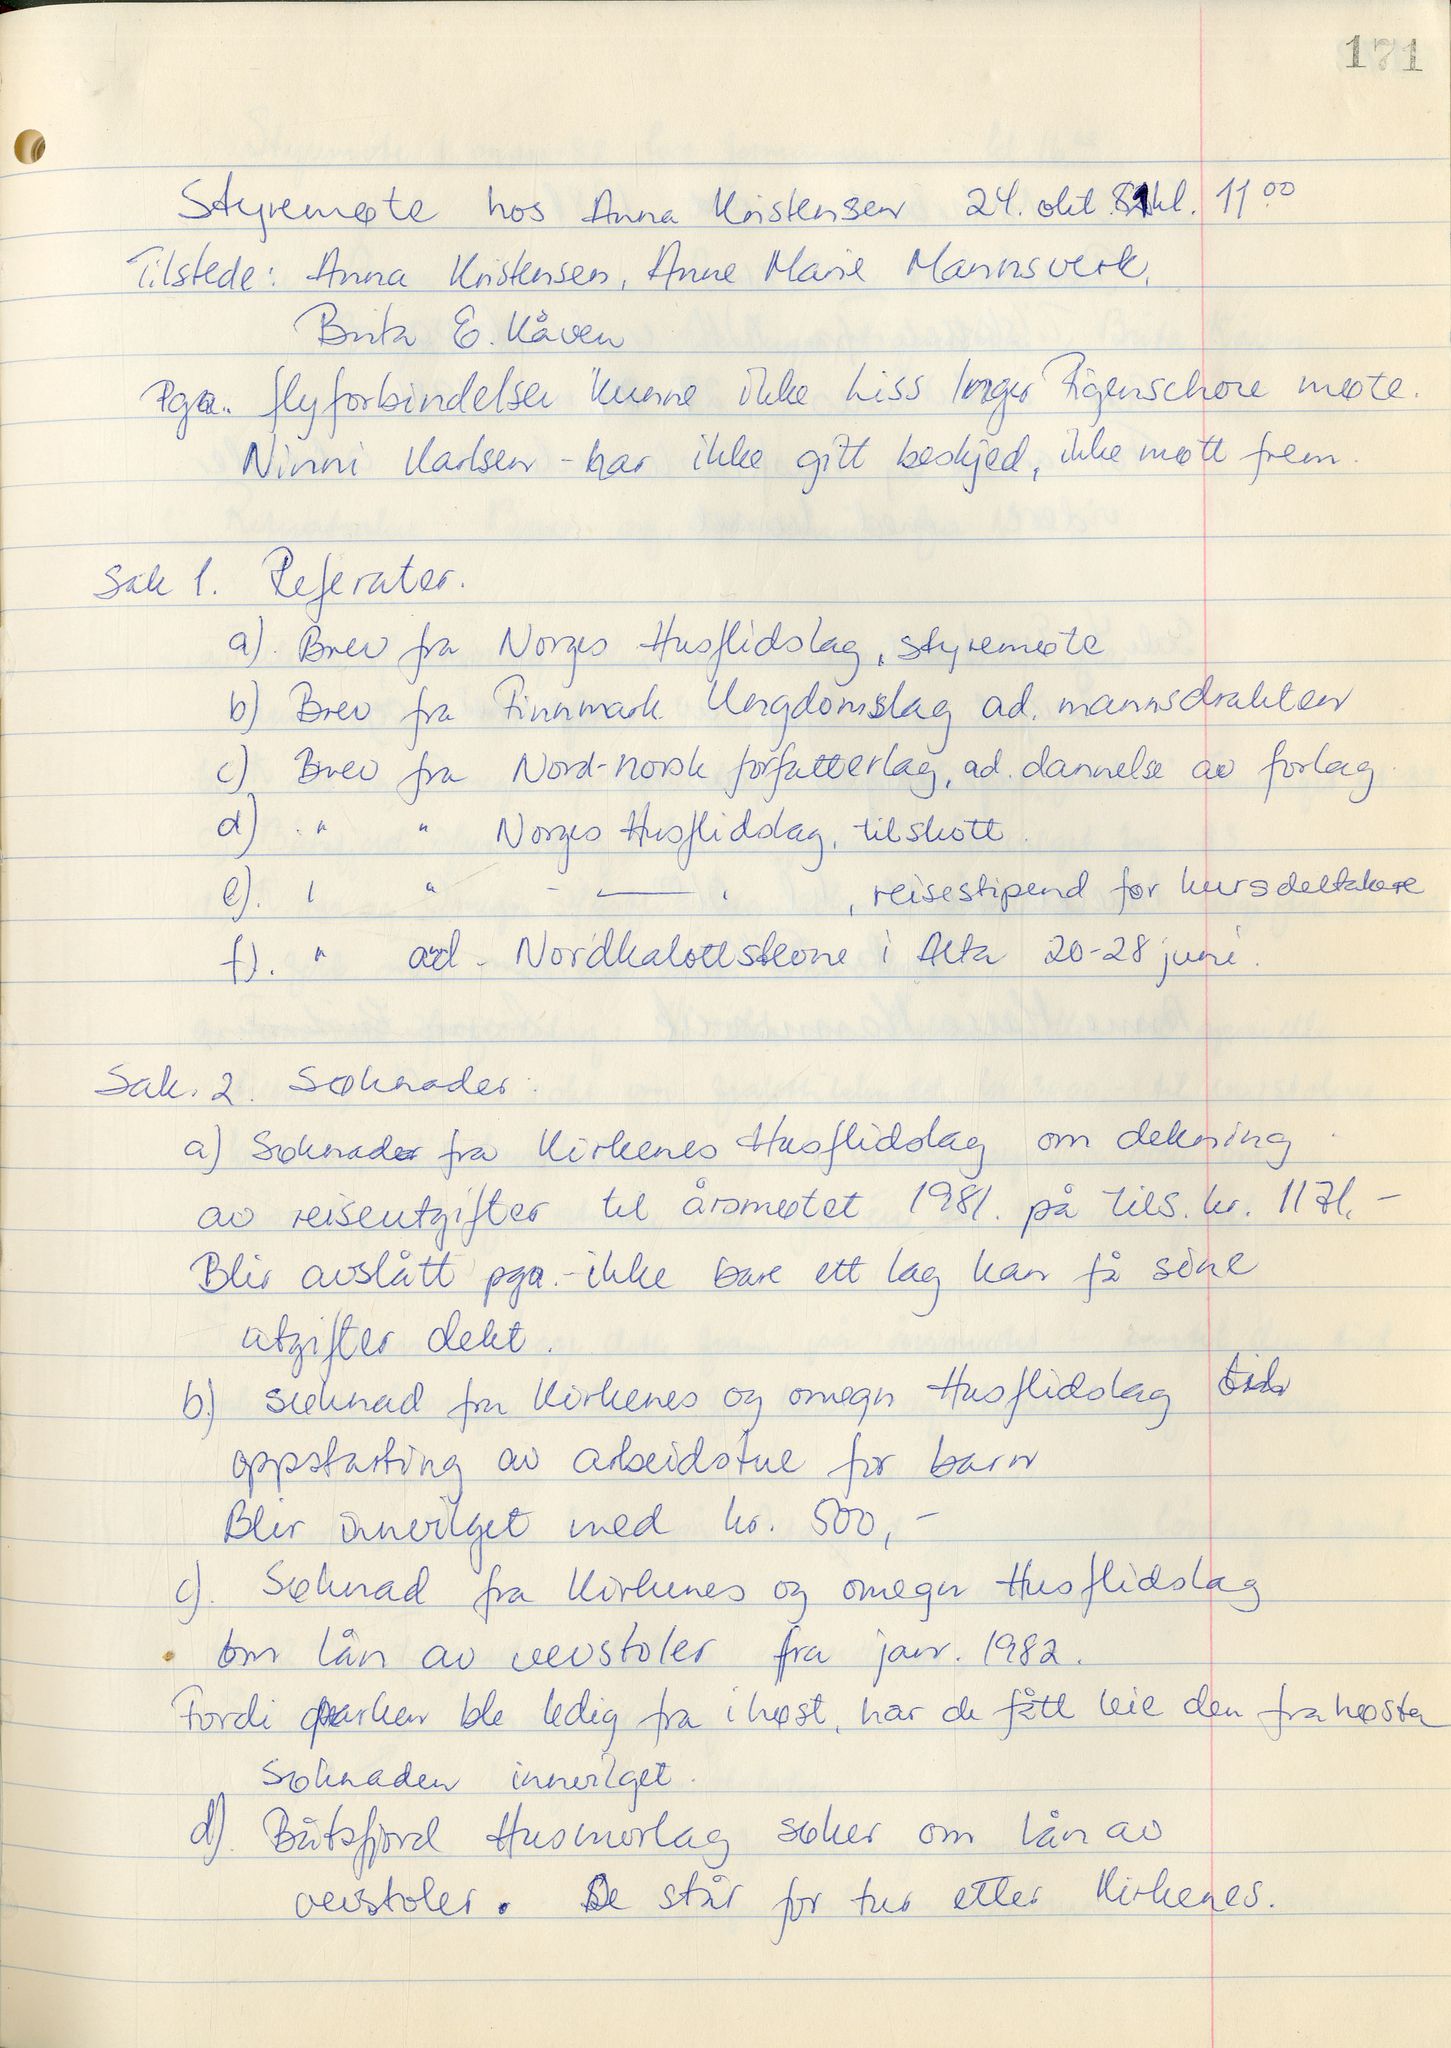 171
Styremøte hos Anna Kristensen 24. okt. 81 kl. 11 00
Tilstede: Anna Kristensen, Anne Marie Mannsverk,
Brita E. Kåven
Pga. flyforbindelser kunne ikke Liss Inger møte.
Ninni Karlsen - har ikke gitt beskjed, ikke møtt frem.
Sak 1. Referater.
a). Brev fra Norges Husflidslag, styremøte
b) Brev fra Finnmark Ungdomslag ad. mannsdrakten
c) Brev fra Nord-norsk forfatterlag, ad. dannelse av forlag.
d) " " Norges Husflidslag, tilskott.
e). " " - — , reisestipend for kursdeltakere
f). " ad. Nordkalottstevne i Alta 20-28 juni.
Sak. 2. Søknader.
a) Søknader fra Kirkenes Husflidslag om dekning
av reiseutgifter til årsmøtet 1981. på tils. kr. 1171,-
Blir avslått pga.- ikke bare ett lag kan få sine
utgifter dekt.
b.) søknad fra Kirkenes og omegn Husflidslag
oppstarting av arbeidstue for barn
Blir innvilget med kr. 500,-
c). Søknad fra Kirkenes og omegn Husflidslag
om lån av vevstoler fra jan. 1982.
Fordi parken ble ledig fra i høst, har de fått leie den fra høsten
Søknaden innvilget.
d). Båtsfjord Husmorlag søker om lån av
vevstoler. De står for tur etter Kirkenes.